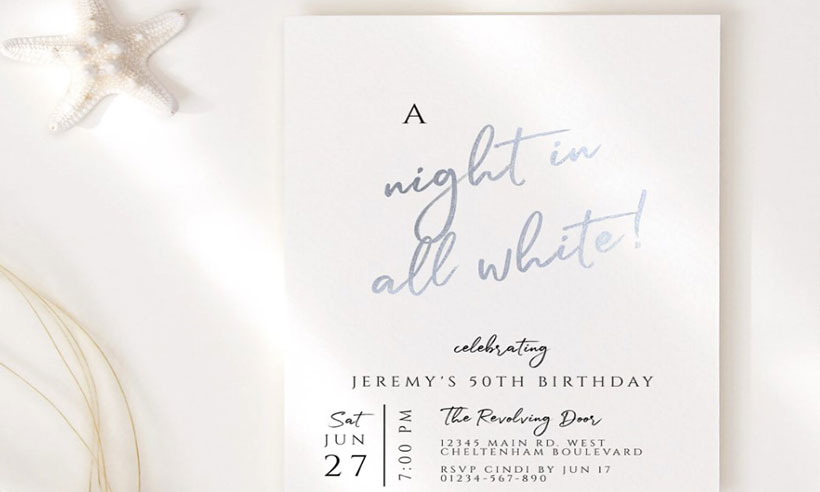 A
night in
all white!
celebrating
JEREMY'S 50TH BIRTHDAY
Sat
JUN
27
7:00 PM
The Revolving Door
12345 MAIN RD. WEST
CHELTENHAM BOULEVARD
RSVP CINDI BY JUN 17
01234-567-890